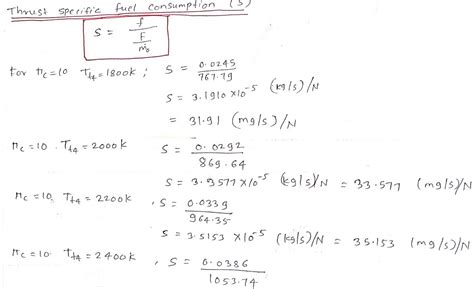 Thrust specific fuel consumption (S)
S = f / (F / ṁ₀)
For πc=10 Tt4=1800k ; S = 0.0245 / 767.79
S = 3.1910 ×10⁻⁵ (kg/s)/N
= 31.91 (mg/s)/N
πc=10 Tt4 = 2000k S = 0.0292 / 869.64
S = 3.3577×10⁻⁵ (kg/s)/N = 33.577 (mg/s)/N
πc=10, Tt4 = 2200k , S = 0.0339 / 964.35
S = 3.5153 ×10⁻⁵ (kg/s)/N = 35.153 (mg/s)/N
πc=10 Tt4 = 2400k , S = 0.0386 / 1053.74